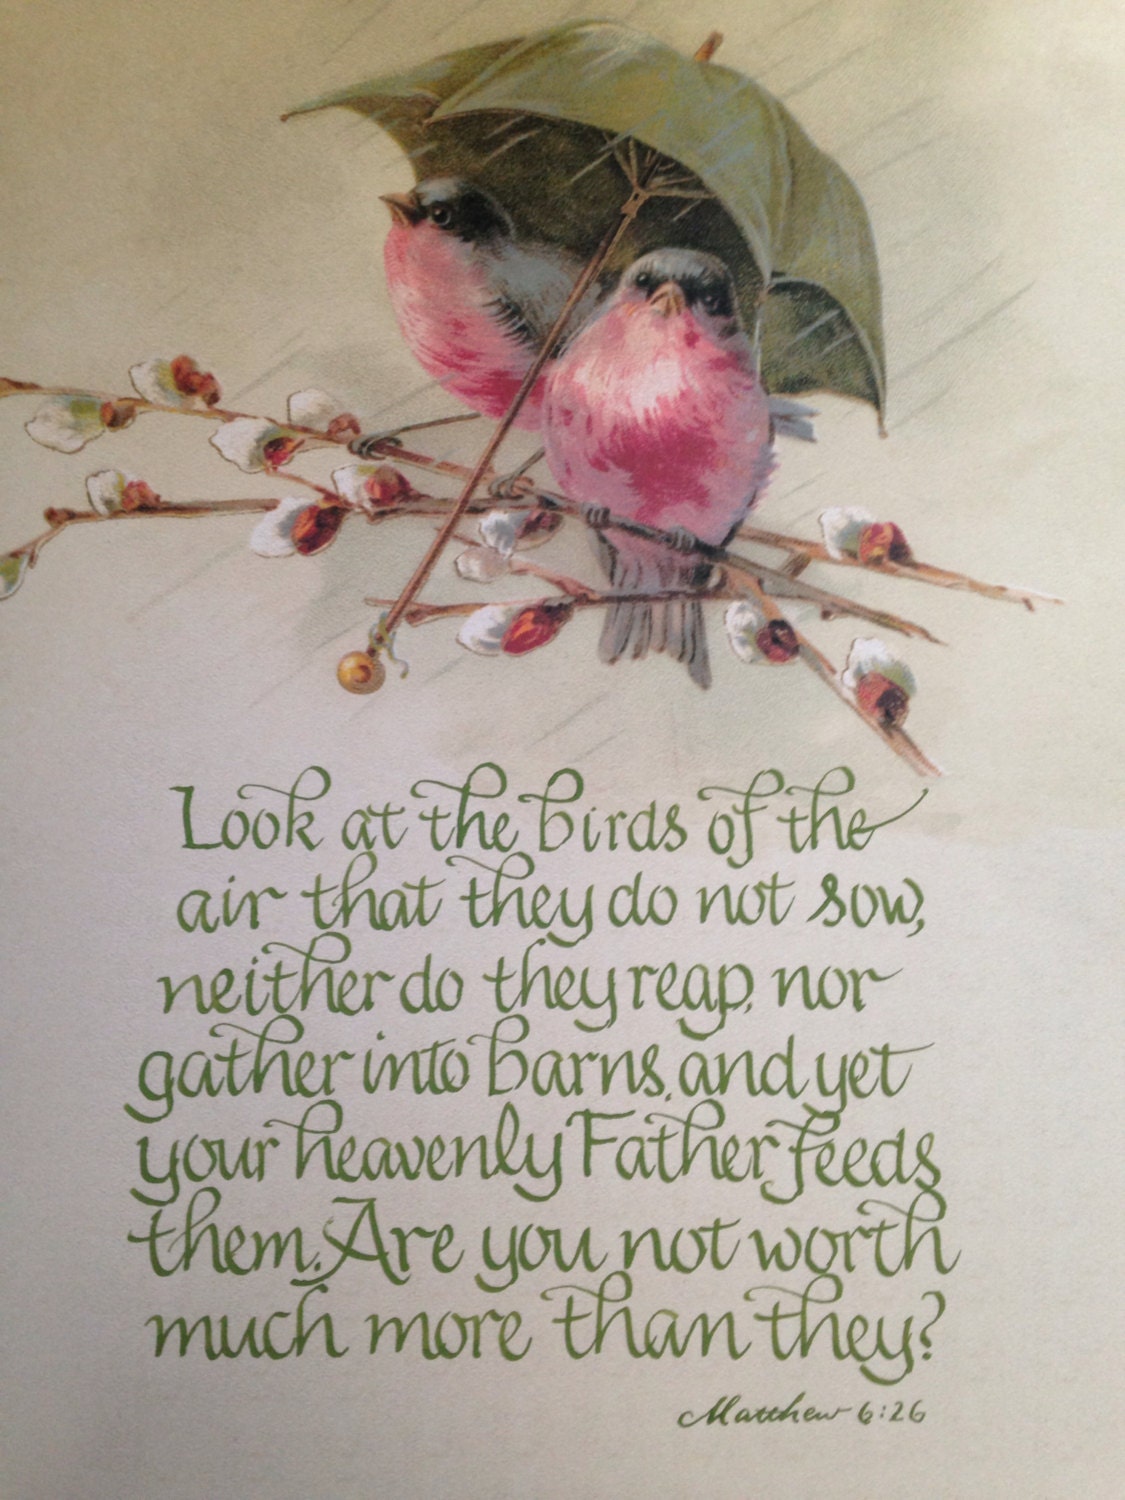 Look at the birds of the
air that they do not sow,
neither do they reap, nor
gather into barns, and yet
your heavenly Father feeds
them. Are you not worth
much more than they?
Matthew 6:26